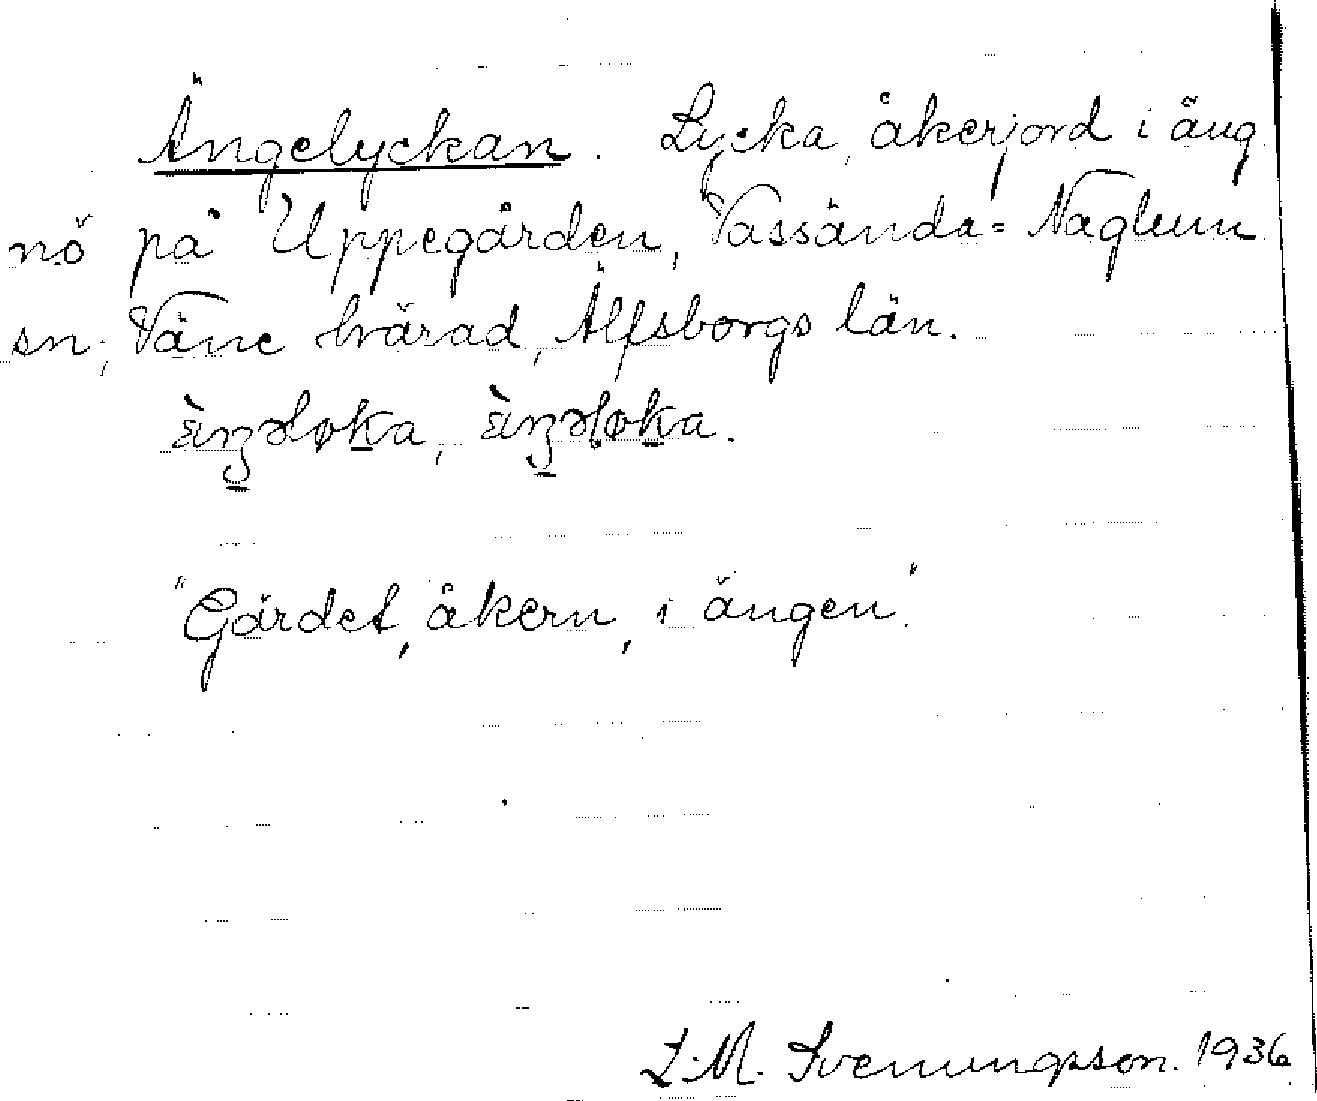 Ängelyckan. Lycka, åkerjord i äng
nö på Uppegården, Vassända=Naglum
sn, Väne härad, Älfsborgs län.
"Gärdet, åkern, i ängen".
L.M. Svenungsson. 1936